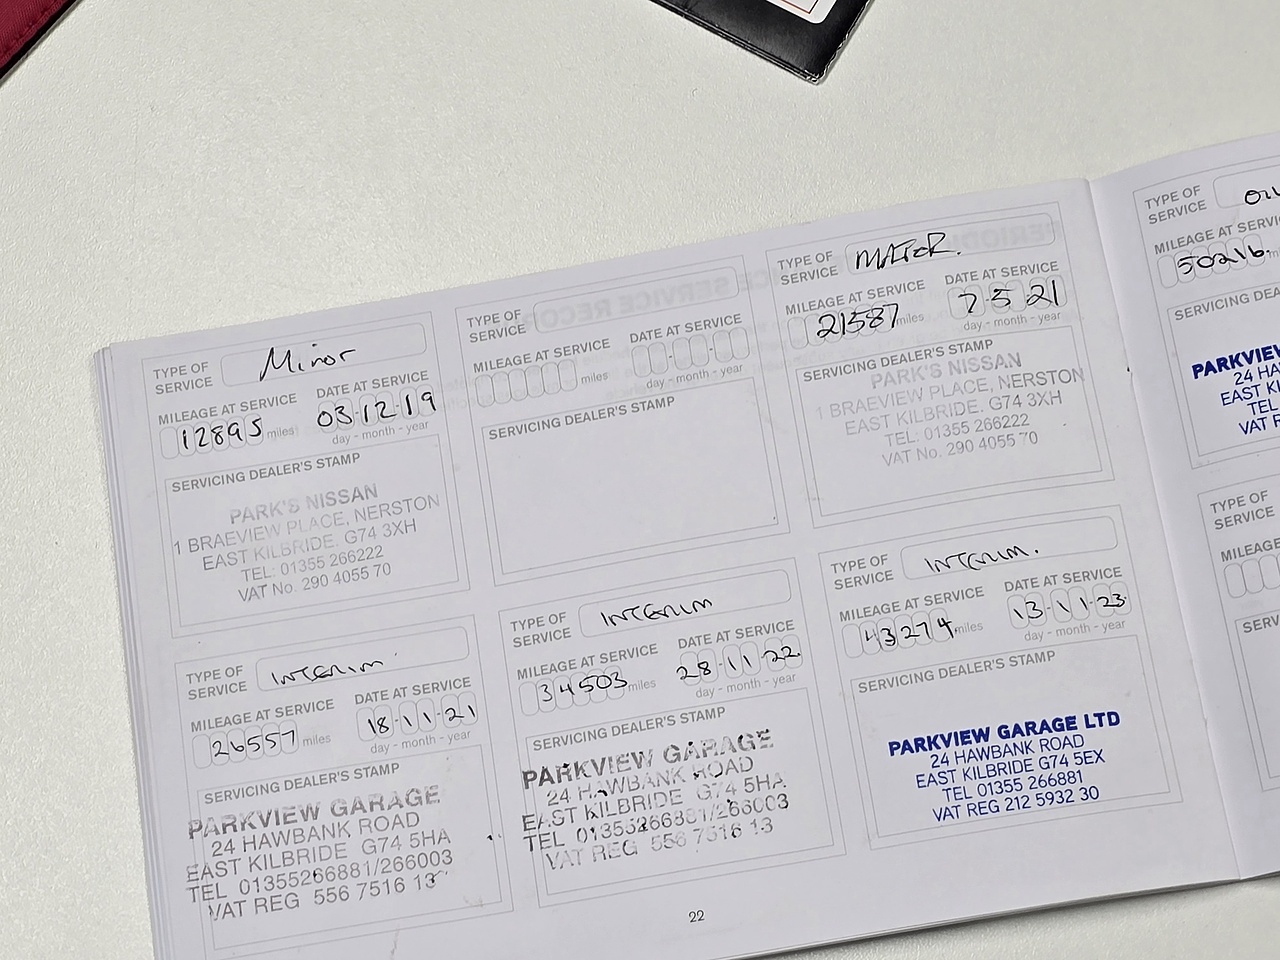 TYPE OF
SERVICE
Minor
MILEAGE AT SERVICE
DATE AT SERVICE
12895 miles
03-12-19
day - month - year
SERVICING DEALER'S STAMP
PARK'S NISSAN
1 BRAEVIEW PLACE, NERSTON
EAST KILBRIDE. G74 3XH
TEL: 01355 266222
VAT No. 290 4055 70
TYPE OF
SERVICE
MILEAGE AT SERVICE
DATE AT SERVICE
miles
day - month - year
SERVICING DEALER'S STAMP
TYPE OF
SERVICE
MAJOR.
MILEAGE AT SERVICE
DATE AT SERVICE
21587 miles
7-5-21
day - month - year
SERVICING DEALER'S STAMP
PARK'S NISSAN
1 BRAEVIEW PLACE, NERSTON
EAST KILBRIDE. G74 3XH
TEL: 01355 266222
VAT No. 290 4055 70
TYPE OF
SERVICE
INTERIM
MILEAGE AT SERVICE
DATE AT SERVICE
26557 miles
18-11-21
day - month - year
SERVICING DEALER'S STAMP
PARKVIEW GARAGE
24 HAWBANK ROAD
EAST KILBRIDE G74 5HA
TEL 01355266881/266003
VAT REG 556 7516 13
TYPE OF
SERVICE
INTERIM
MILEAGE AT SERVICE
DATE AT SERVICE
34503 miles
28-11-22
day - month - year
SERVICING DEALER'S STAMP
PARKVIEW GARAGE
24 HAWBANK ROAD
EAST KILBRIDE G74 5HA
TEL 01355266881/266003
VAT REG 556 7516 13
TYPE OF
SERVICE
INTERIM.
MILEAGE AT SERVICE
DATE AT SERVICE
43274 miles
13-11-23
day - month - year
SERVICING DEALER'S STAMP
PARKVIEW GARAGE LTD
24 HAWBANK ROAD
EAST KILBRIDE G74 5EX
TEL 01355 266881
VAT REG 212 5932 30
22
TYPE OF
SERVICE
MILEAGE AT
50216
SERVICING
PARKVIEW
24
EAST
TEL
VAT
TYPE OF
SERVICE
MILEAGE